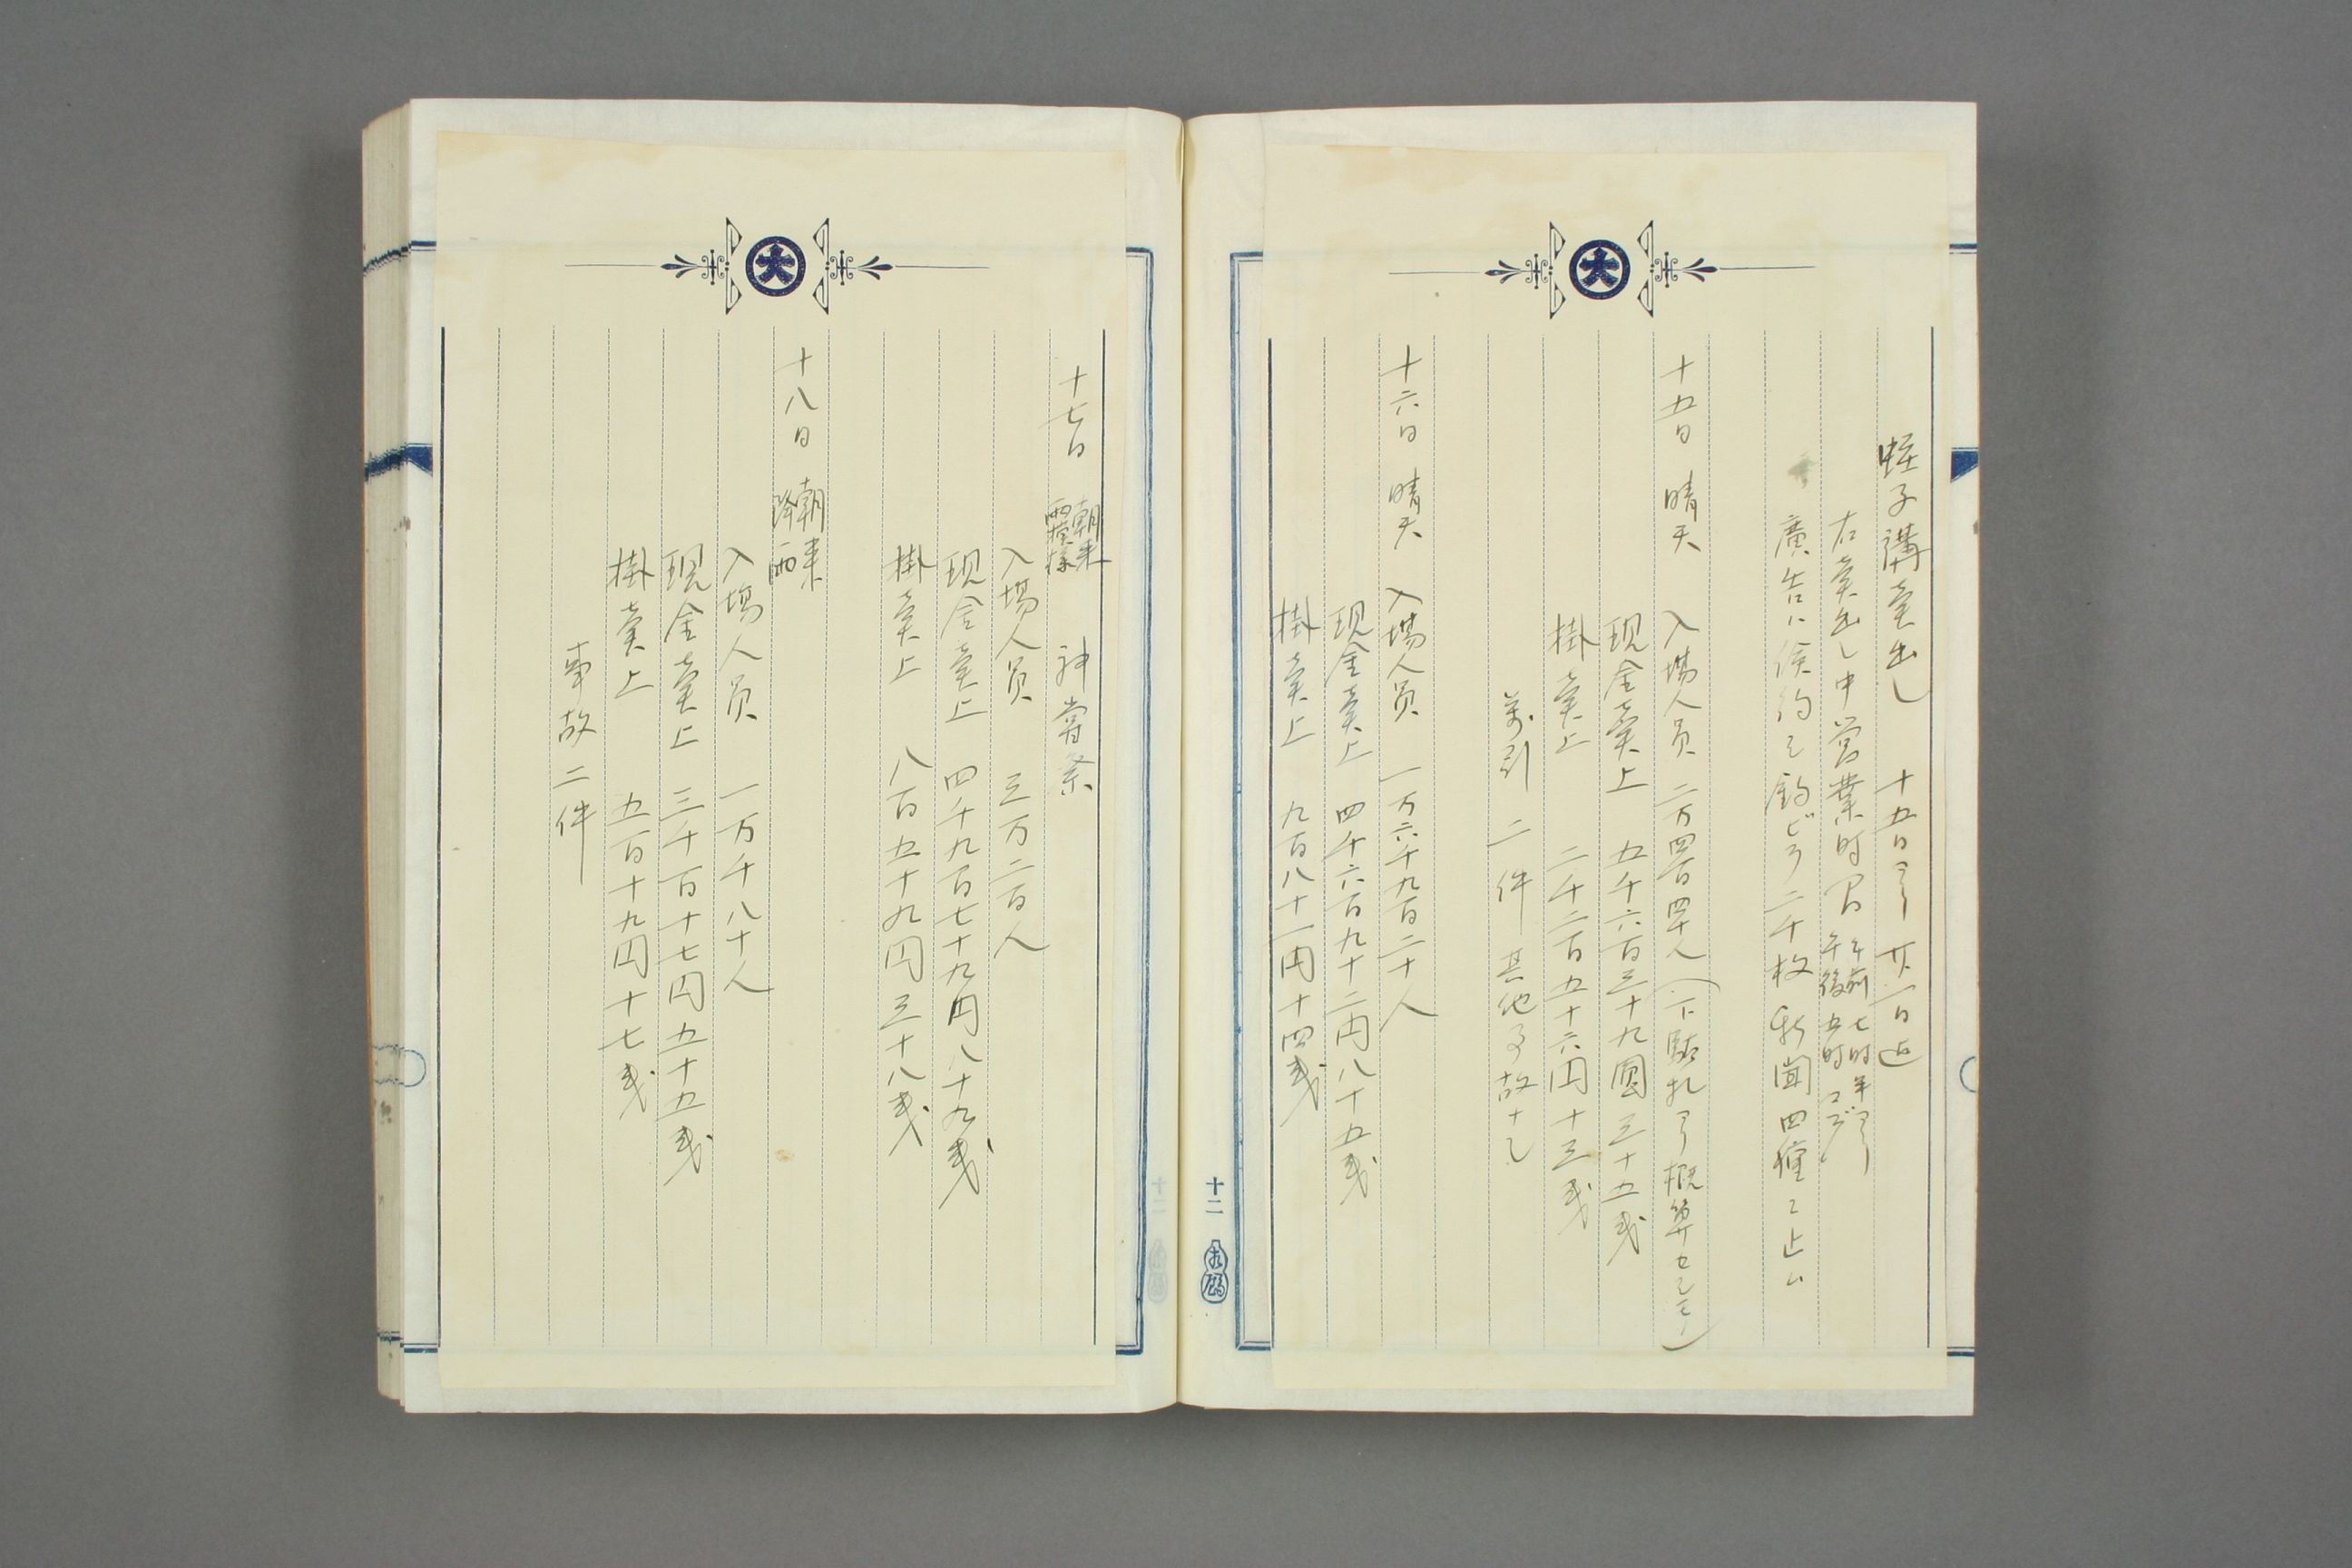 蛭子講賣出し 十五日ヨリ廿一日迄
右賣出し中営業時間 午前七時半ヨリ 午後五時マデ
廣告ハ倹約シ ビラ二千枚 新聞四種ニ止ム
十五日 晴天 入場人員 二万四百四十人（下駄札ヨリ概算セシモノ）
現金賣上 五千六百三十九圓三十五戋
掛賣上 二千二百五十六円十三戋
萬引 二件 其他事故ナシ
十六日 晴天 入場人員 一万六千九百二十人
現金賣上 四千六百九十二円八十五戋
掛賣上 九百八十一円十四戋
十二
大
十七日 朝来雨模様 神嘗祭
入場人員 三万二百人
現金賣上 四千九百七十九円八十九戋
掛賣上 八百五十九円三十八戋
十八日 朝来降雨
入場人員 一万千八十人
現金賣上 三千百十七円五十五戋
掛賣上 五百十九円十七戋
事故二件
大